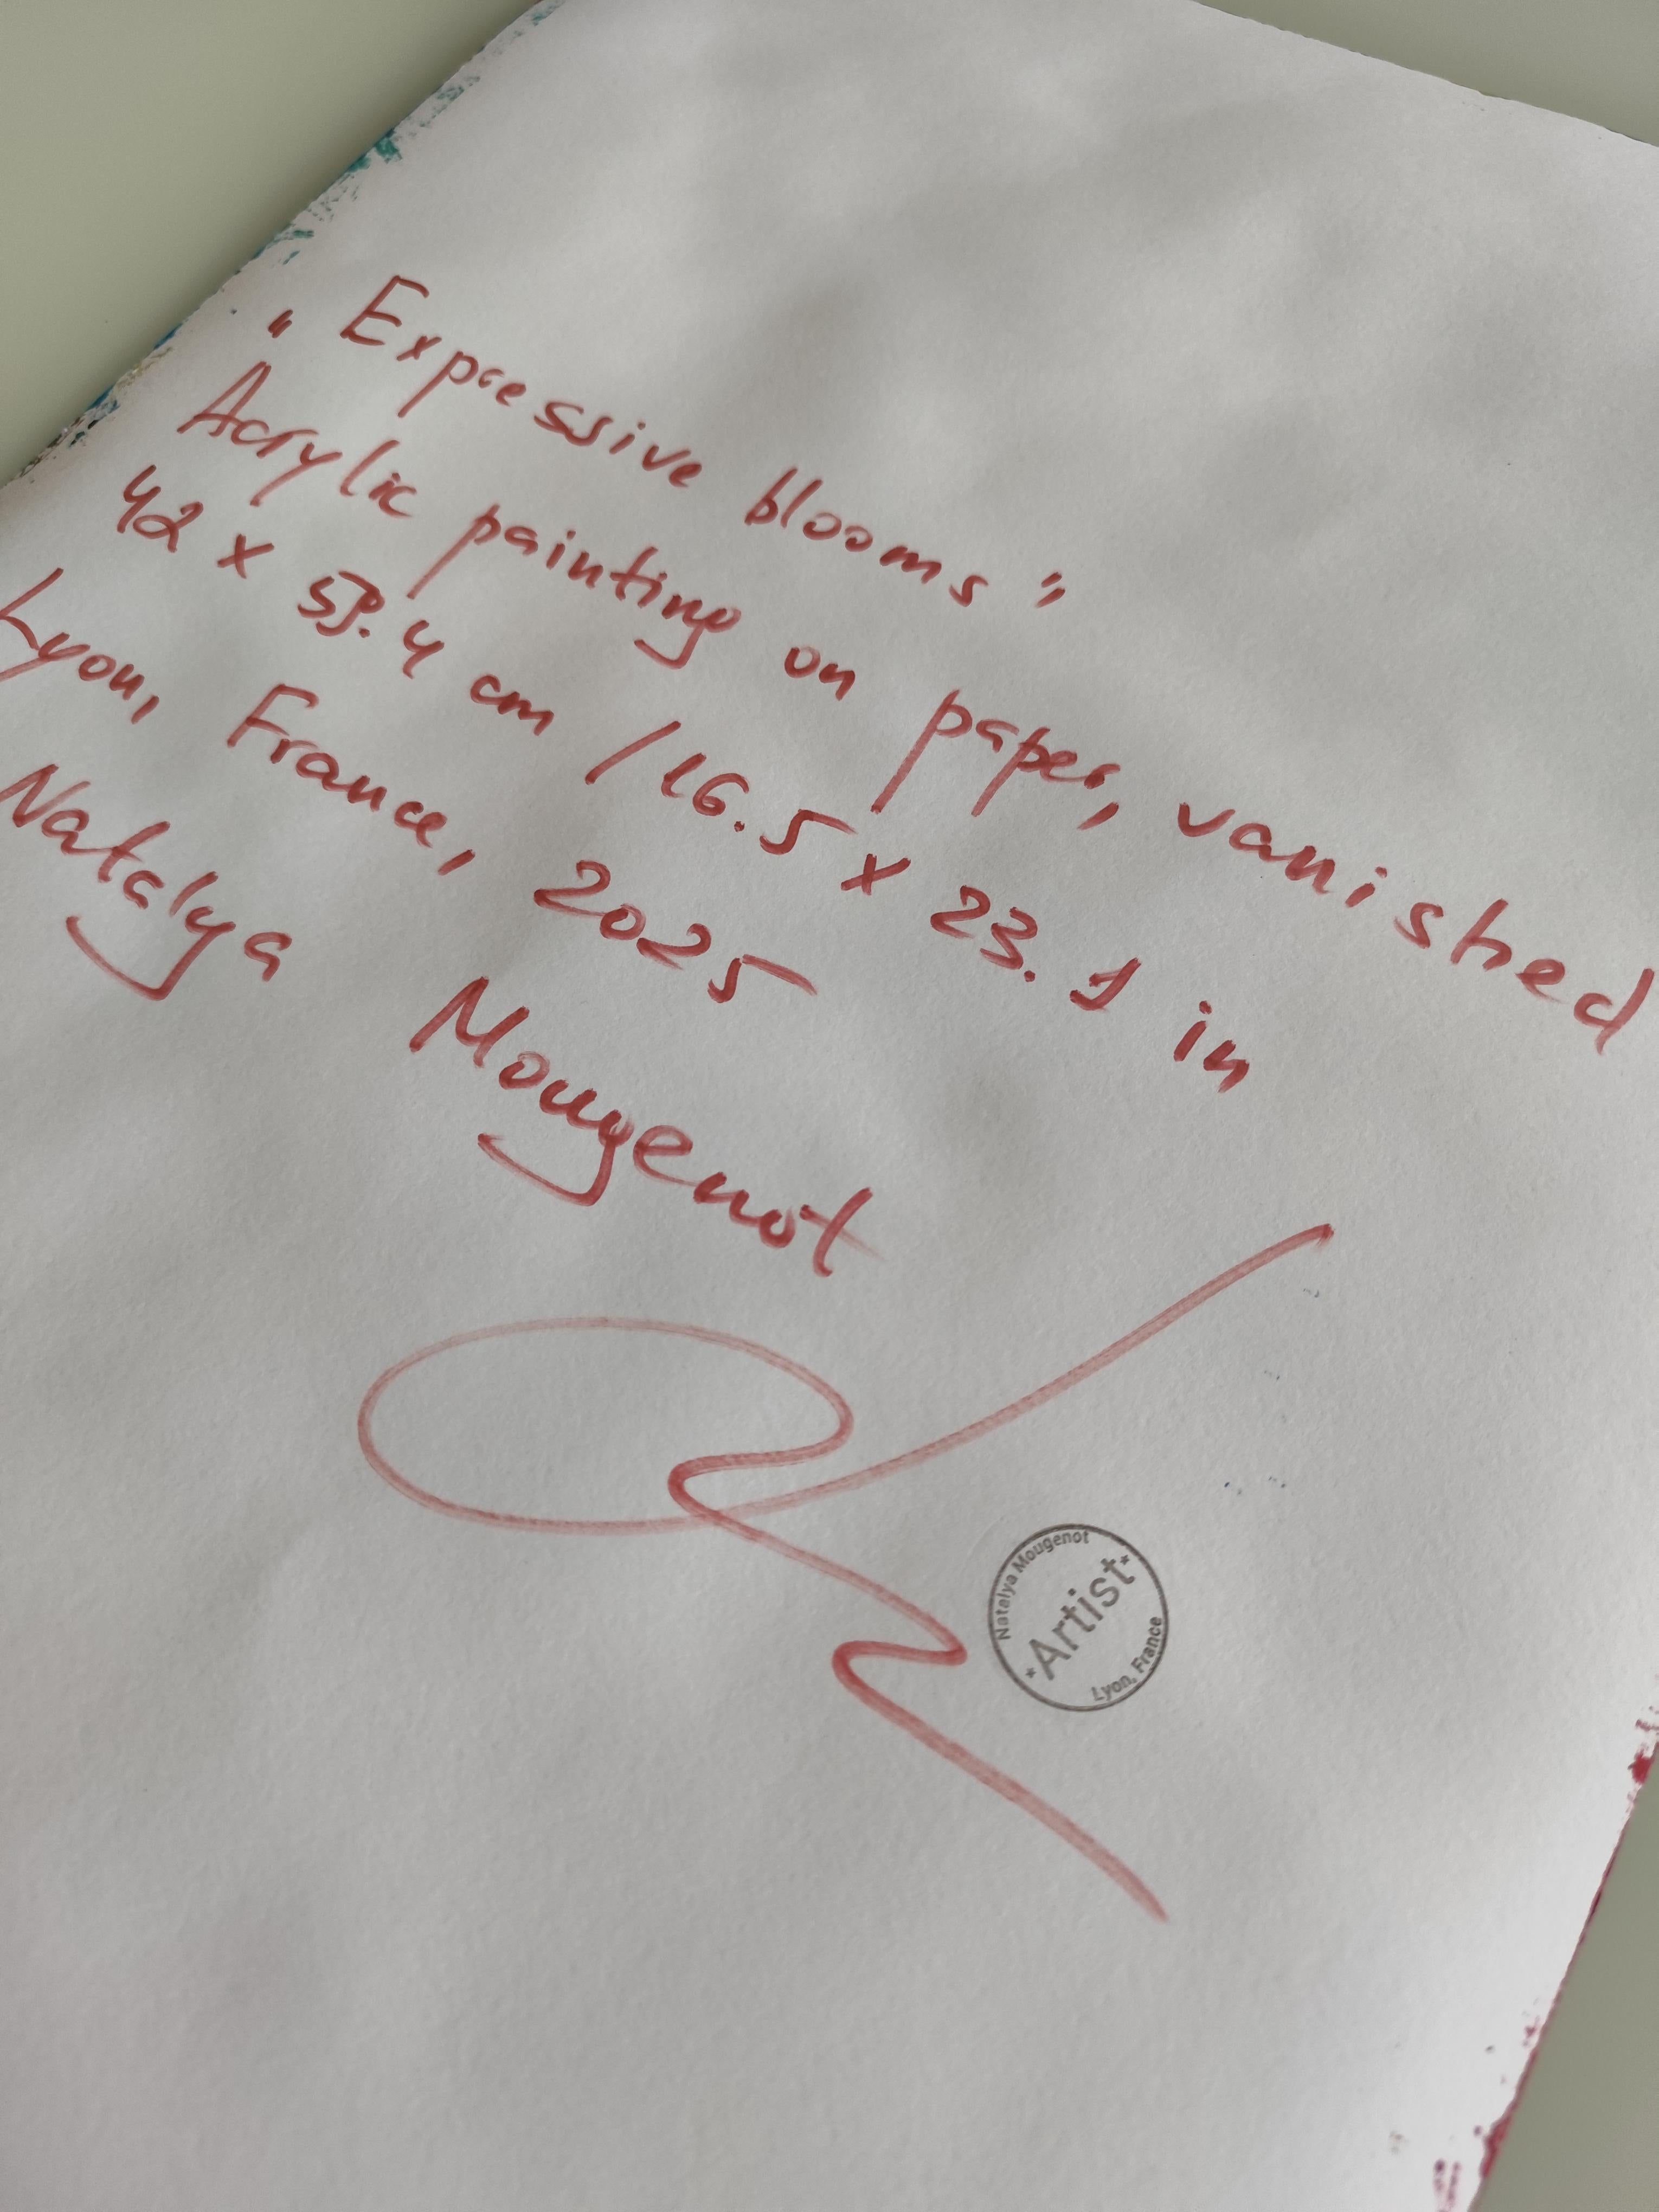 „Expressive blooms"
Acrylic painting on paper, vanished
42 x 59.4 cm / 16.5 x 23.1 in
Lyon, France, 2025
Natalya Mougenot
Natalya Mougenot
*Artist*
Lyon, France